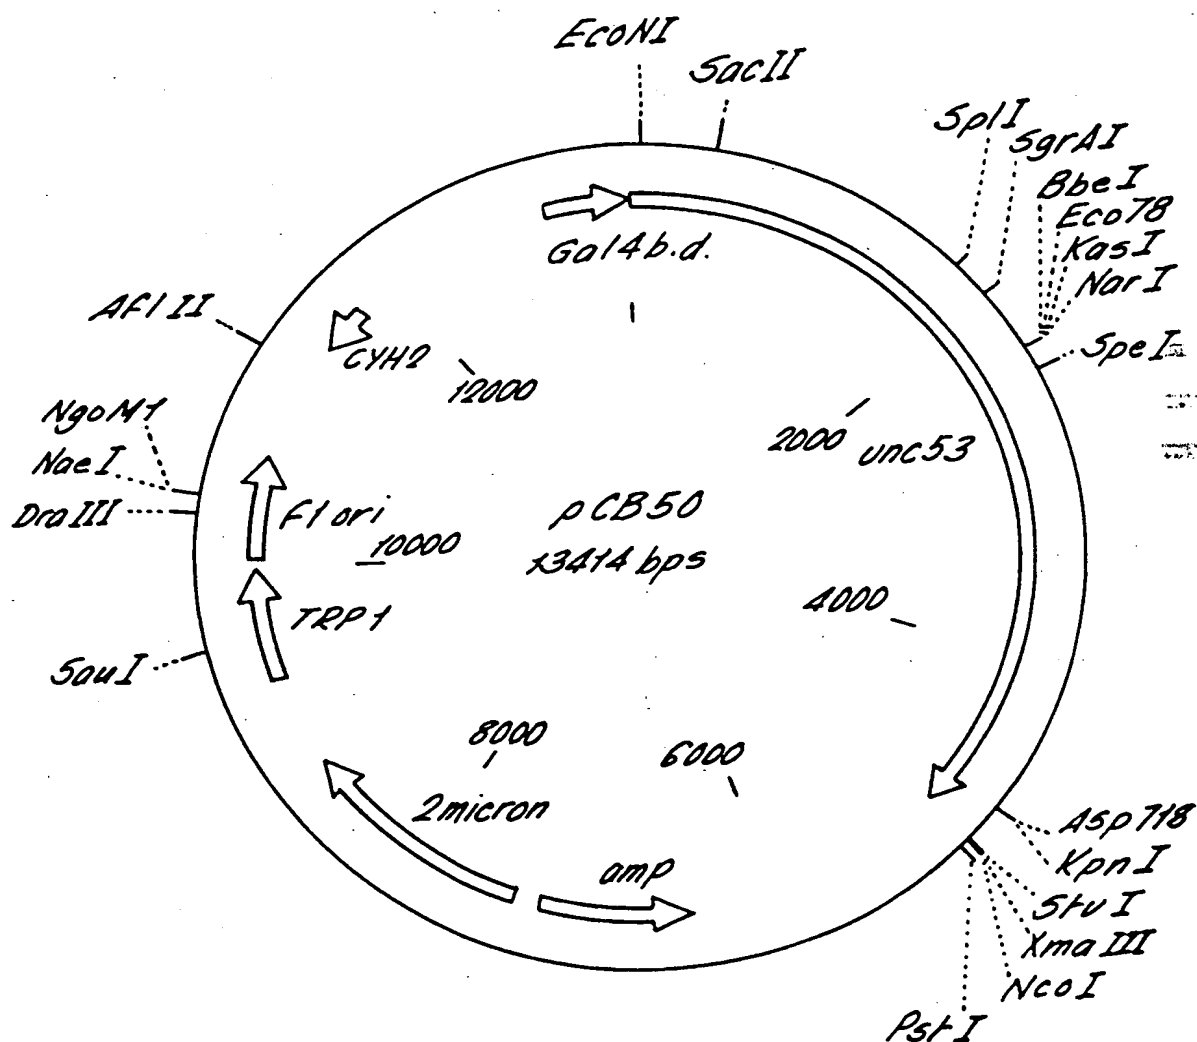 EcoNI
SacII
SplI
SgrAI
BbeI
Eco78
KasI
NarI
SpeI
Gal4b.d.
AflII
CYH2
12000
2000
unc53
NgoM1
NaeI
DraIII
F1 ori
10000
pCB50
13414 bps
4000
TRP1
SauI
8000
6000
2micron
amp
Asp718
KpnI
StuI
XmaIII
NcoI
PstI